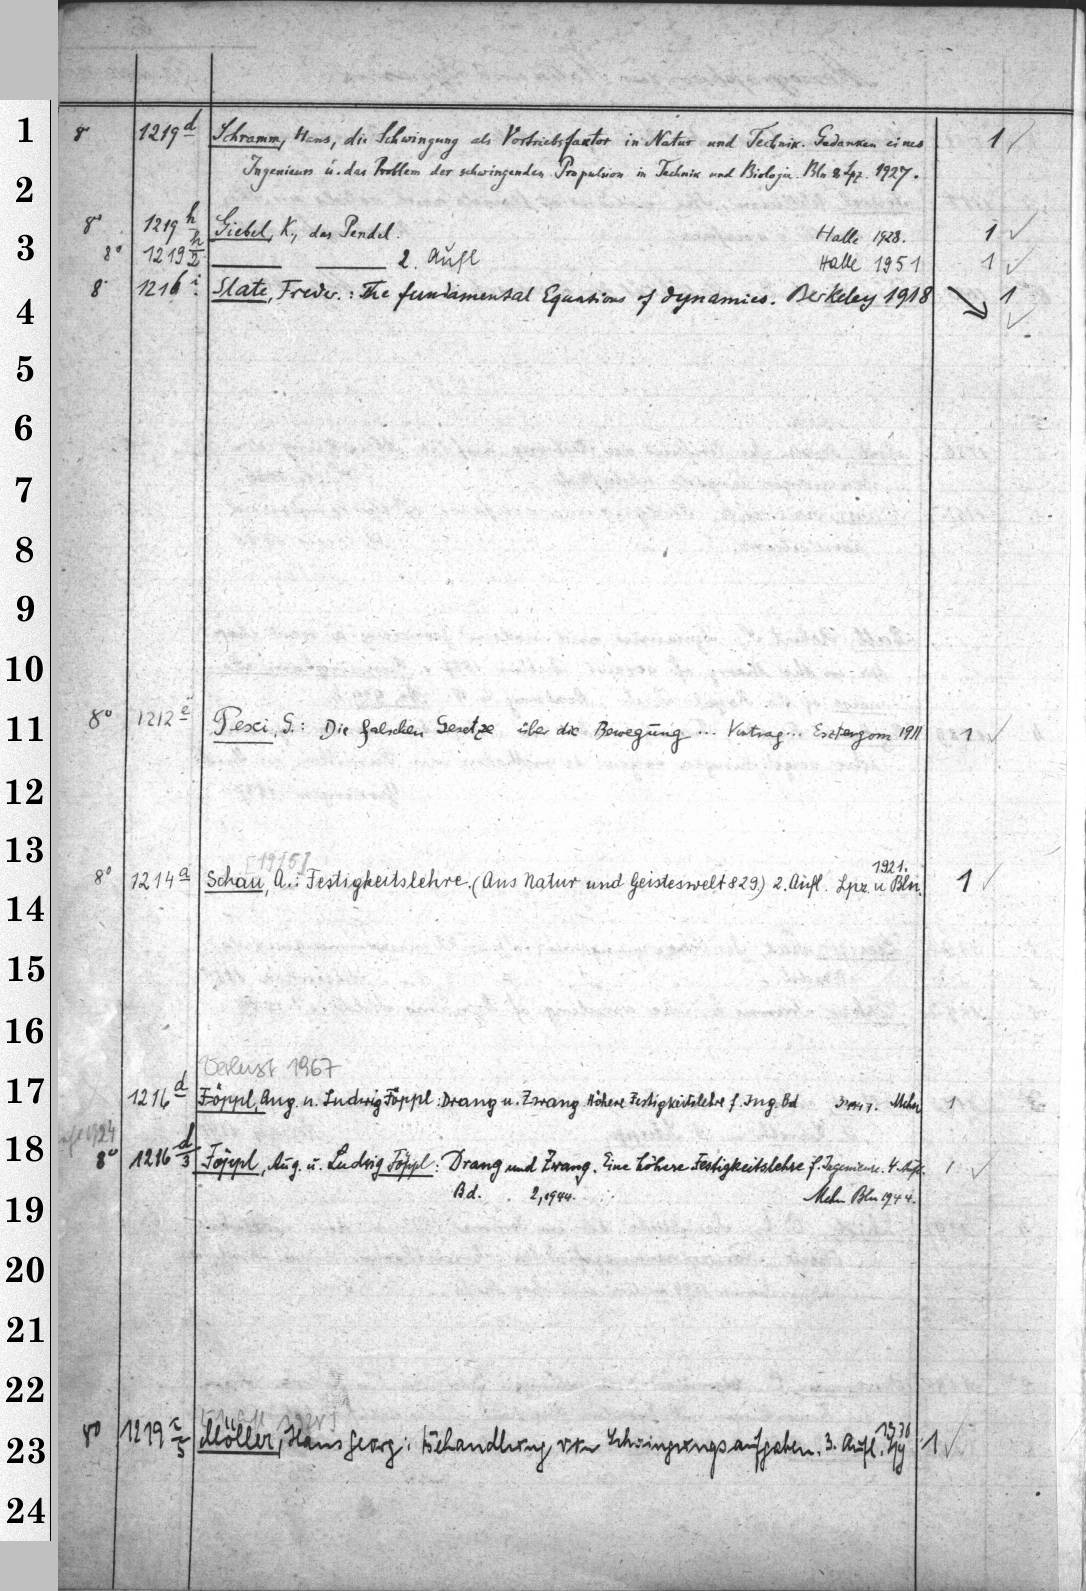 1
8° 1219 d Schramm, Hans, die Schwingung als Vortriebsfaktor in Natur und Technik. Gedanken eines 1 ✓
2
Ingenieurs ü. das Problem der schwingenden Propulsion in Technik und Biologie. Bln & Lpz. 1927.
8° 1219 h Giebel, K, das Pendel. Halle 1928. 1 ✓
3
8° 1219 h/2 2. Aufl Halle 1951 1 ✓
8° 1216 i. Slate, Freder.: The fundamental Equations of dynamics. Berkeley 1918 1
4
✓
5
6
7
8
9
10
8° 1212 e Pexi, G.: Die falschen Gesetze über die Bewegung ... Vortrag... Esztergom 1911 1 ✓
11
12
13
1921.
8° 1214 a Schau, A.: Festigkeitslehre. (Aus Natur und Geisteswelt 829.) 2. Aufl. Lpz. u Bln. 1 ✓
14
15
16
Verlust 1967
17
1216 d Föppl, Aug. u. Ludwig Föppl: Drang u. Zwang Höhere Festigkeitslehre f. Ing. Bd Mchn 1
18
8° 1216 d/3 Föppl, Aug. u. Ludwig Föppl: Drang und Zwang. Eine höhere Festigkeitslehre f. Ingenieure. 4. Aufl. 1 ✓
19
Bd. 2, 1944. Mchn Bln 1944.
20
21
22
1936
8° 1219 c/3 Möller, Hans Georg: Behandlung von Schwingungsaufgaben. 3. Aufl. Lpg 1 ✓
23
24